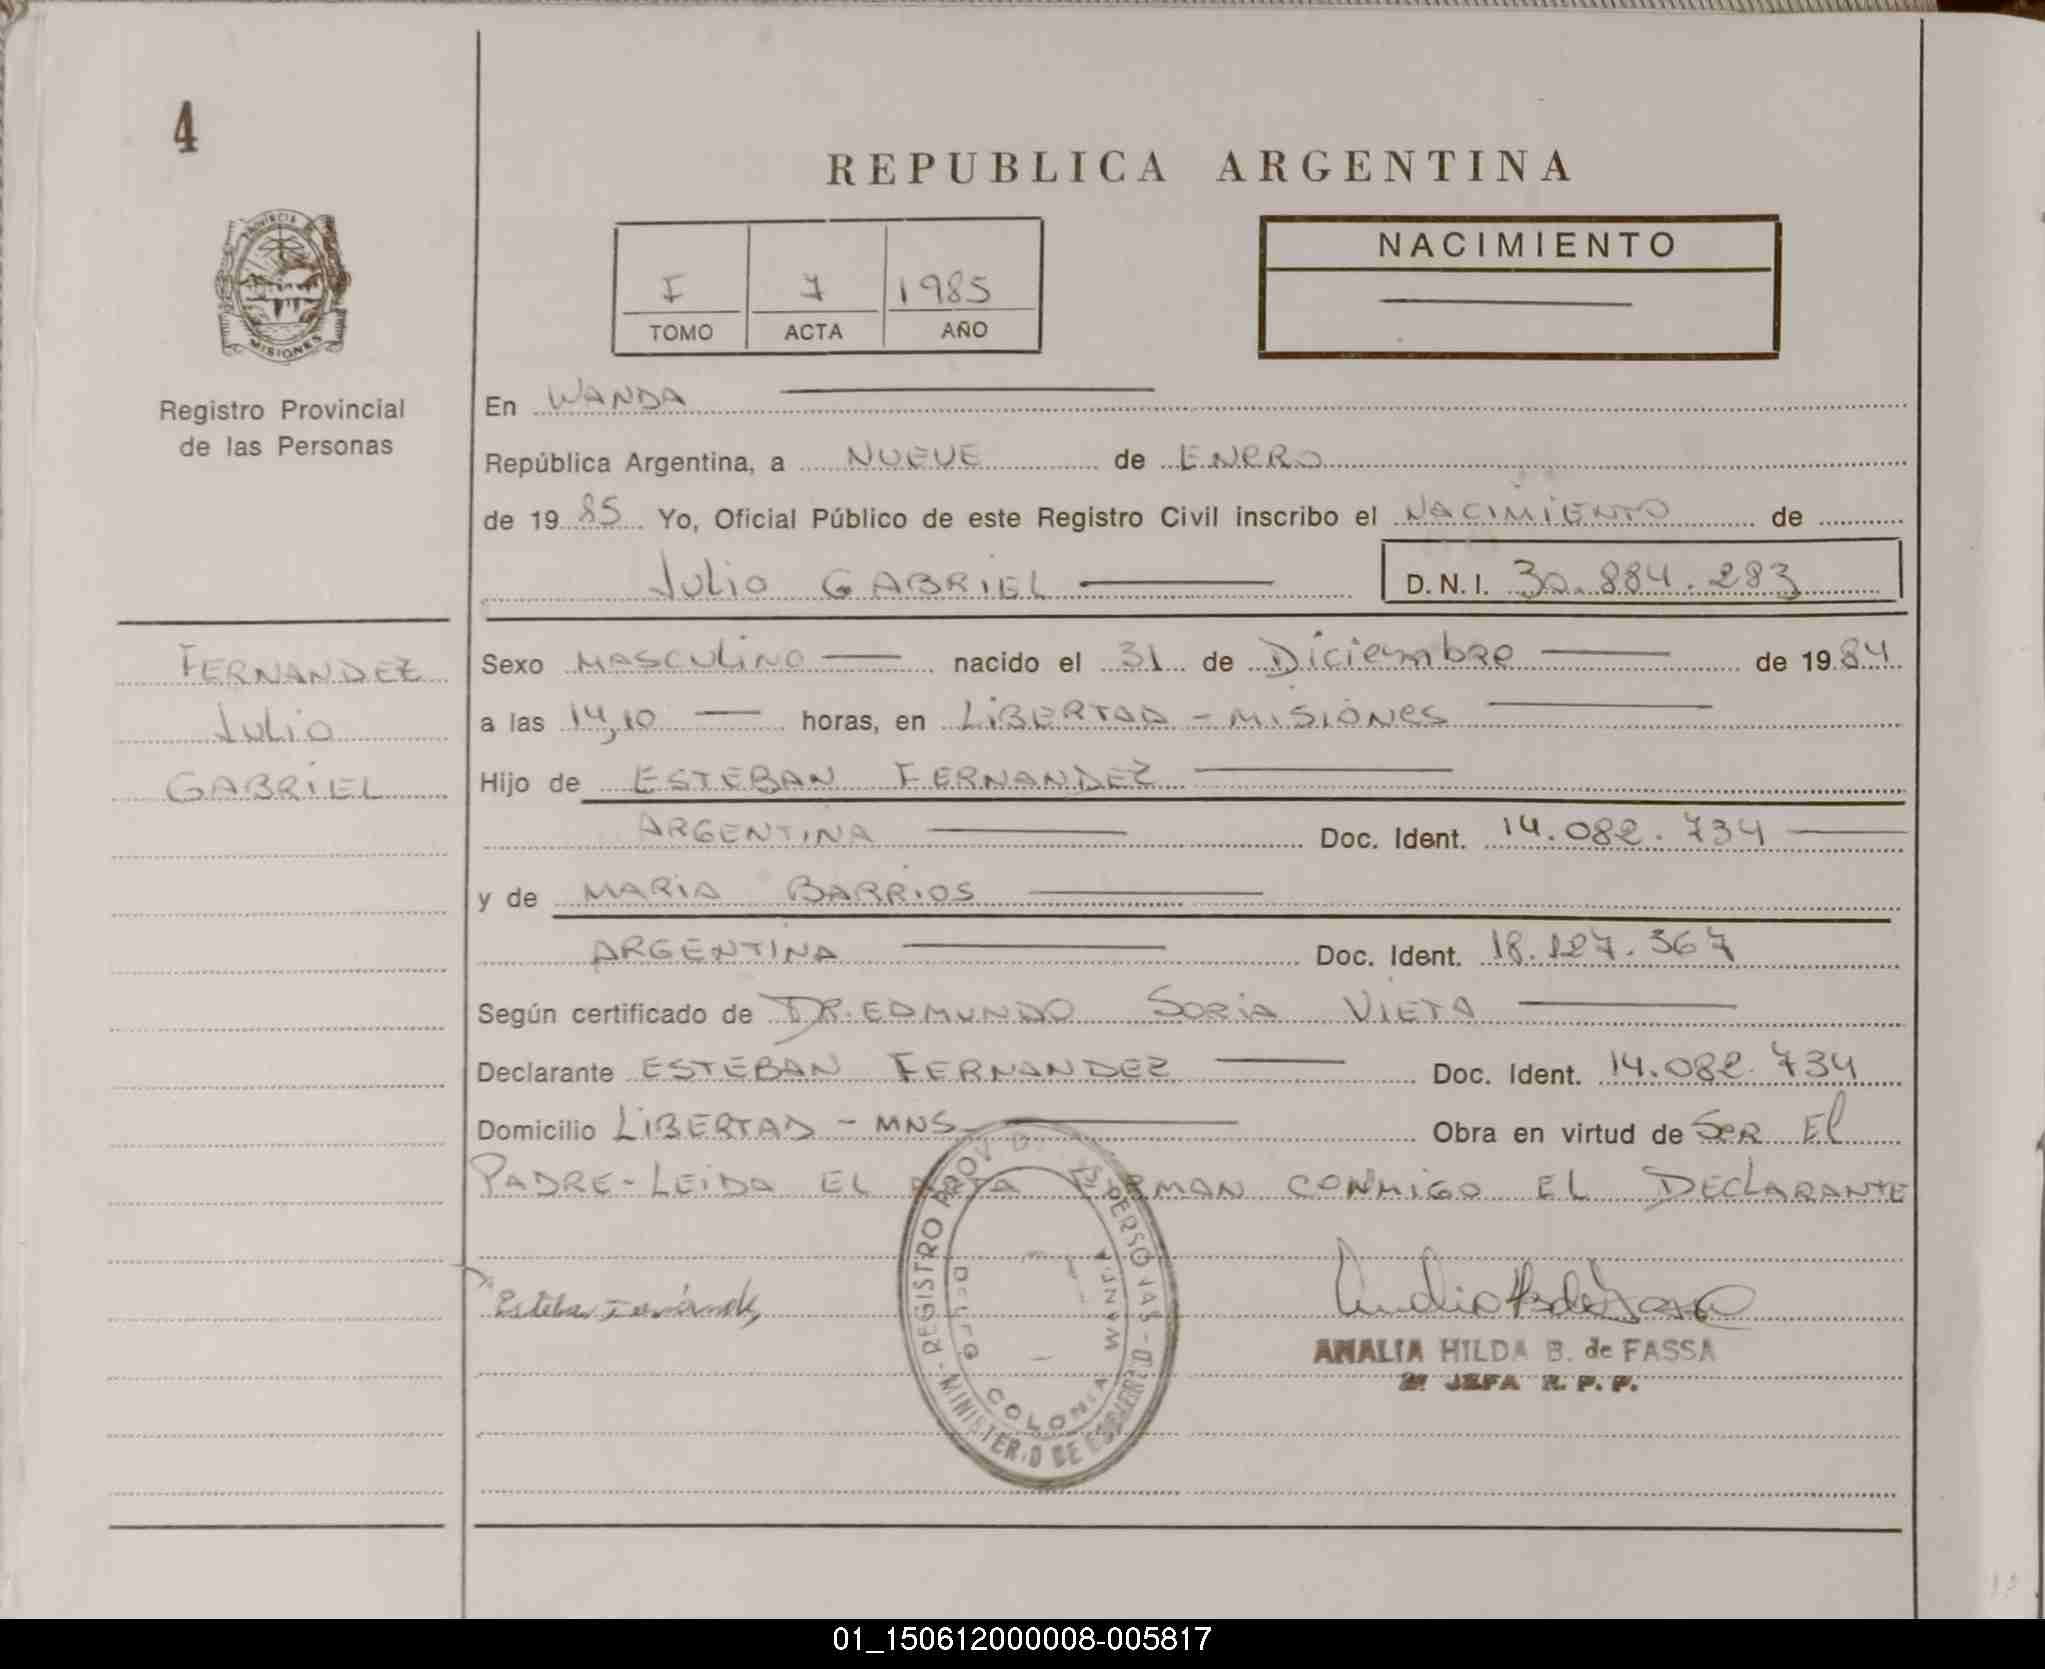 4
REPUBLICA ARGENTINA
PROVINCIA
MISIONES
Registro Provincial
de las Personas
I 7 1985
TOMO ACTA AÑO
NACIMIENTO
En WANDA
República Argentina, a NUEVE de ENERO
de 19 85 Yo, Oficial Público de este Registro Civil inscribo el NACIMIENTO de
JULIO GABRIEL D.N.I. 30.884.283
FERNANDEZ
JULIO
GABRIEL
Sexo MASCULINO nacido el 31 de Diciembre de 19 84
a las 14,10 horas, en LIBERTAD - MISIONES
Hijo de ESTEBAN FERNANDEZ
ARGENTINA Doc. Ident. 14.082.734
y de MARIA BARRIOS
ARGENTINA Doc. Ident. 18.127.367
Según certificado de DR. EDMUNDO SORIA VIETA
Declarante ESTEBAN FERNANDEZ Doc. Ident. 14.082.734
Domicilio LIBERTAD - MNS Obra en virtud de SER El
PADRE - LEIDA EL ACTA FIRMAN CONMIGO EL DECLARANTE
Esteban Fernández
AMALIA HILDA B. de FASSA
2ª JEFA R. P. P.
REGISTRO PROV. D. PERSONAS
MINISTERIO DE
COLONIA WANDA
01_150612000008-005817